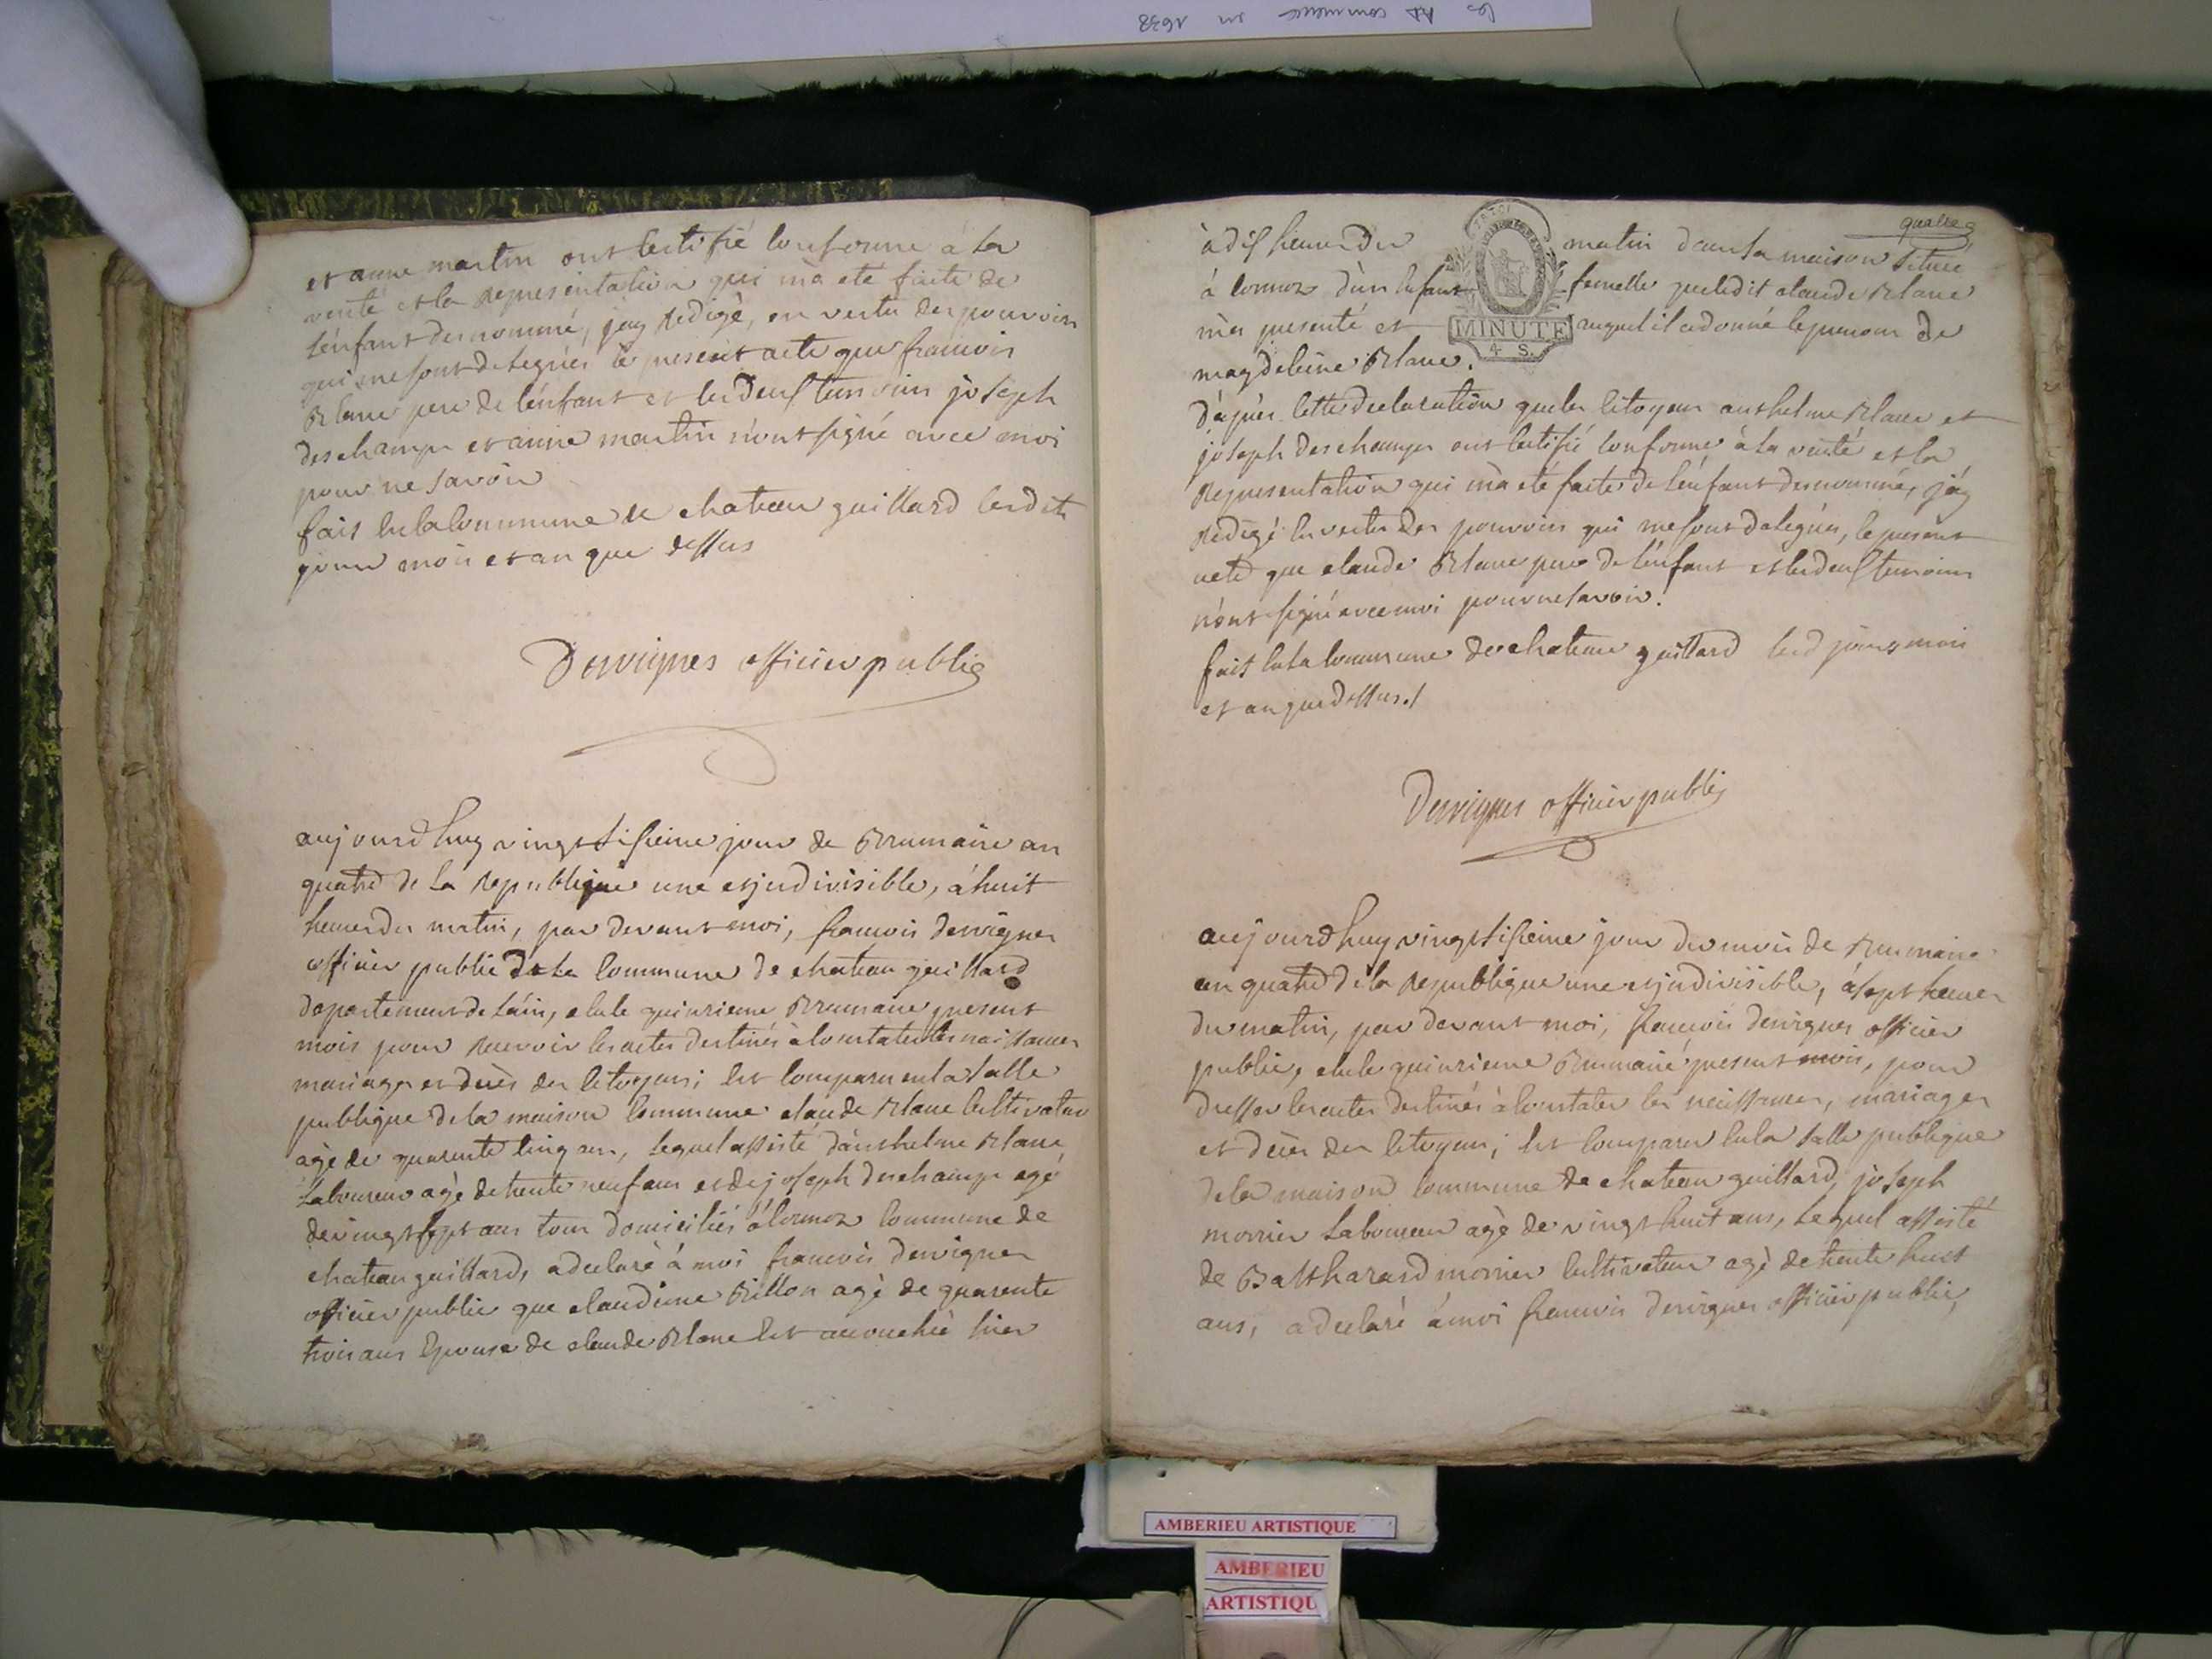 les commence en 1698
et anne martin ont certifié conforme à la
verité et la representation qui m'a eté faite de
l'énfant denommé, j'ay redigé, en vertu des pouvoirs
qui me sont delegués le present acte que francois
Blanc pere de l'énfant et les deux temoins joseph
deschamps et anne martin n'ont signé avec moi
pour ne savoir
fait en la commune de chateau gaillard lesdits
jour mois et an que dessus
Desvignes officier public
aujourdhuy vingt sixieme jour de Brumaire an
quatre de la republique une et jndivisible, à huit
heures du matin, par devant moi, francois desvignes
officier public de la commune de chateau gaillard
departement de l'áin, elu le quinzieme Brumaire present
mois pour recevoir les actes destinés à constater les naissances
mariages et decès des citoyens; est comparu en la salle
publique de la maison commune claude Blanc cultivateur
agé de quarente cinq ans, lequel assisté d'ánthelme Blanc
laboureur agé de trente neuf ans et de joseph deschamps agé
de vingt sept ans tous domiciliés à cormoz commune de
chateau gaillard, a declaré à moi francois desvignes
officier public que claudine Billon agé de quarente
trois ans epouse de claude Blanc est accouchée hier
quatre
à dix heures du matin dans sa maison située
à cormoz d'ún enfant femelle que ledit claude Blanc
m'a presenté et auquel il a donné le prenom de
MINUTE
4 S.
magdeleine Blanc.
D'áprès cette declaration que les citoyens anthelme Blanc et
joseph deschamps ont certifié conforme à la verité et la
representation qui m'a eté faite de l'énfant denommé, j'áy
redigé en vertu des pouvoirs qui me sont delegués, le present
acte que claude Blanc pere de l'énfant et les deux temoins
n'ont signé avec moi pour ne savoir.
fait en la commune de chateau gaillard lesd jour, mois
et an que dessus./
Desvignes officier public
aujourdhuy vingt sixieme jour du mois de Brumaire
an quatre de la republique une et jndivisible, à sept heures
du matin, par devant moi, francois desvignes officier
public, elu le quinzieme Brumaire present mois, pour
dresser les actes destinés à constater les naissances, mariages
et decès des citoyens; est comparu en la salle publique
de la maison commune de chateau gaillard, joseph
monier laboureur agé de vingt huit ans, lequel assisté
de Balthazard monier cultivateur agé de trente huit
ans, a declaré à moi francois desvignes officier public,
AMBERIEU ARTISTIQUE
AMBERIEU
ARTISTIQU